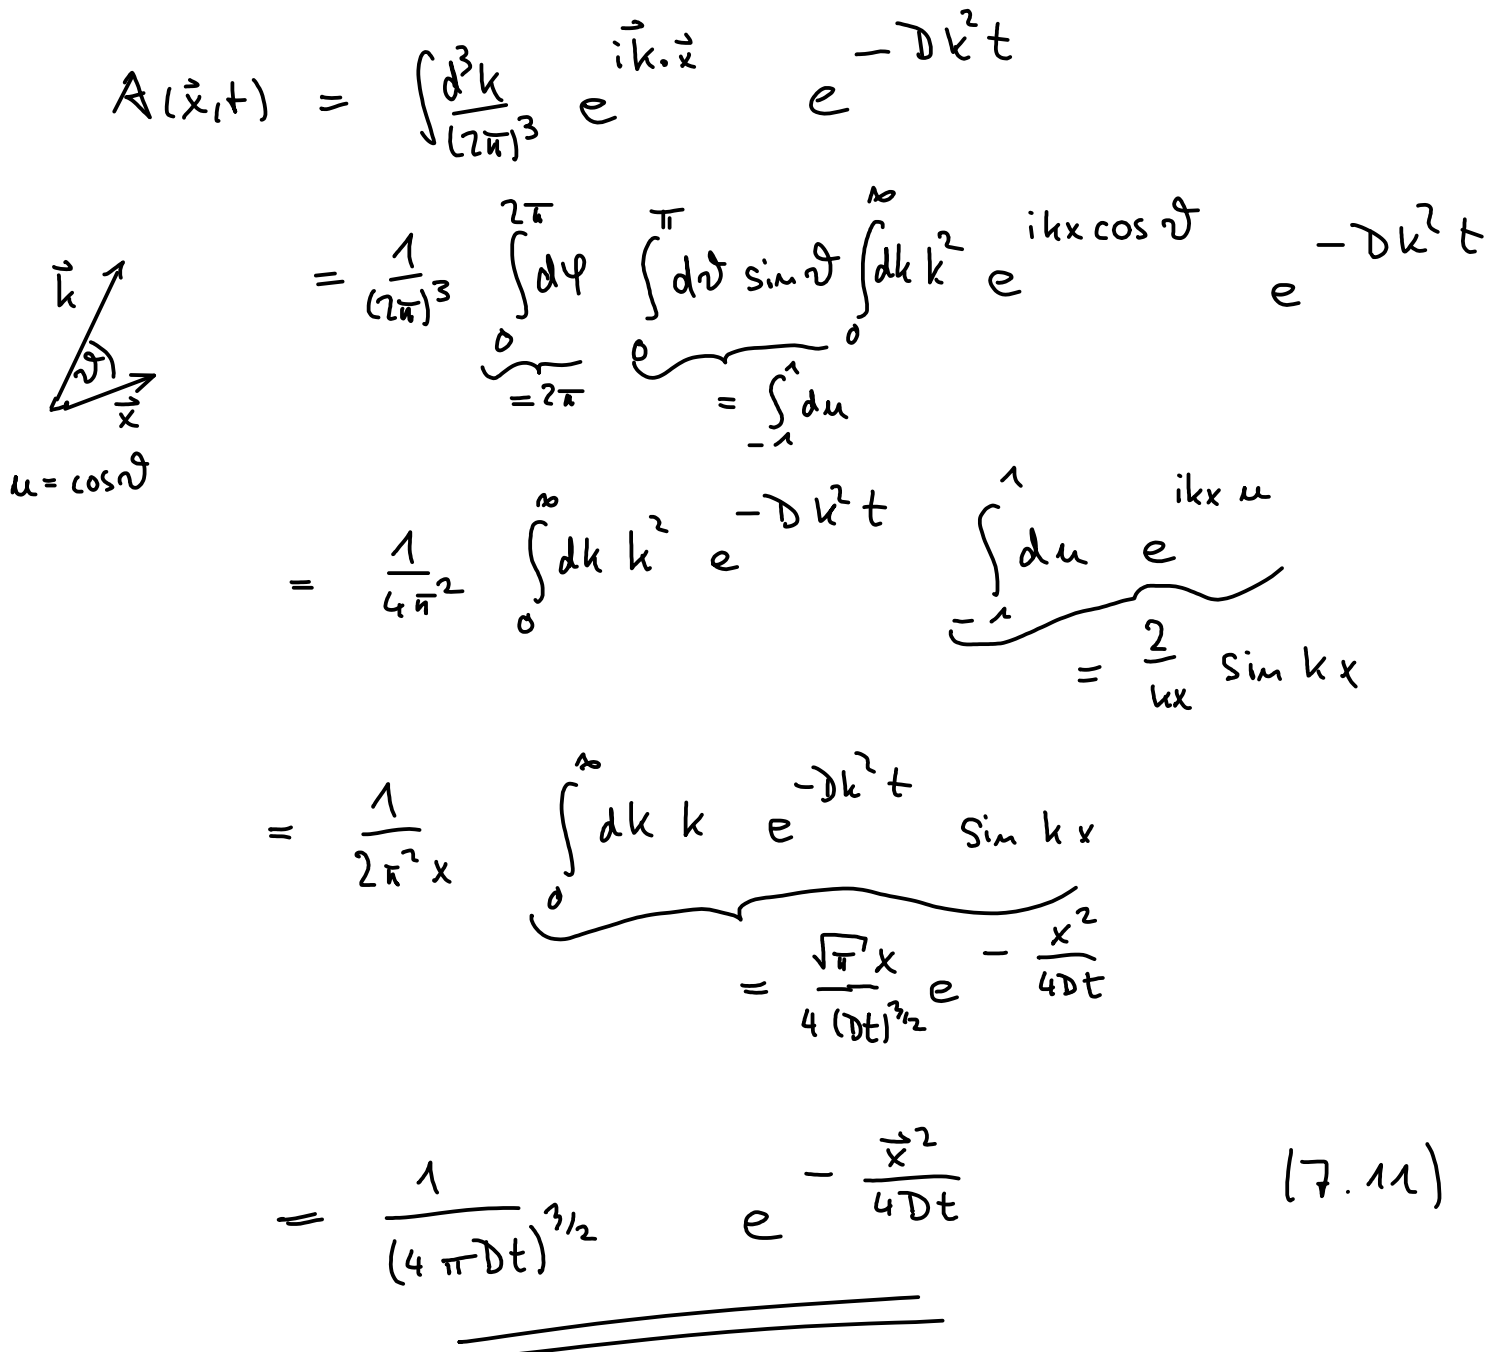 A(x⃗,t) = ∫ d³k/(2π)³ e^{i k⃗·x⃗} e^{-Dk²t}
= 1/(2π)³ ∫₀^{2π} dφ ∫₀^{π} dϑ sin ϑ ∫₀^{∞} dk k² e^{ikx cos ϑ} e^{-Dk²t}
k⃗
ϑ
x⃗
= 2π
= ∫_{-1}^{1} du
u = cos ϑ
= 1/(4π²) ∫₀^{∞} dk k² e^{-Dk²t} ∫_{-1}^{1} du e^{ikxu}
= 2/(kx) sin kx
= 1/(2π²x) ∫₀^{∞} dk k e^{-Dk²t} sin kx
= √π x/(4(Dt)^{3/2}) e^{-x²/(4Dt)}
= 1/(4πDt)^{3/2} e^{-x⃗²/(4Dt)} (7.11)